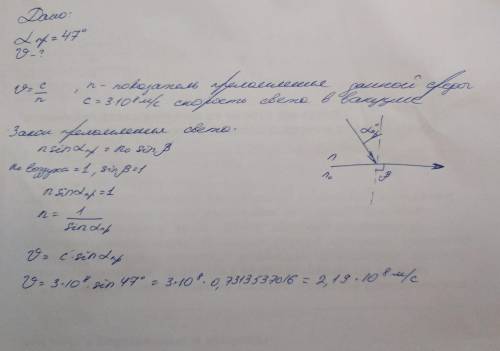 Дано:
αпр = 47°
υ - ?
υ = c/n , n - показатель преломления данной среды
c = 3·10⁸ м/с скорость света в вакууме
Закон преломления света:
n sin αпр = n₀ sin β
n₀ воздуха = 1, sin β = 1
n sin αпр = 1
n = 1/sin αпр
υ = c · sin αпр
υ = 3·10⁸ · sin 47° = 3·10⁸ · 0,7313537016 = 2,19 · 10⁸ м/с
αпр
n
n₀
β